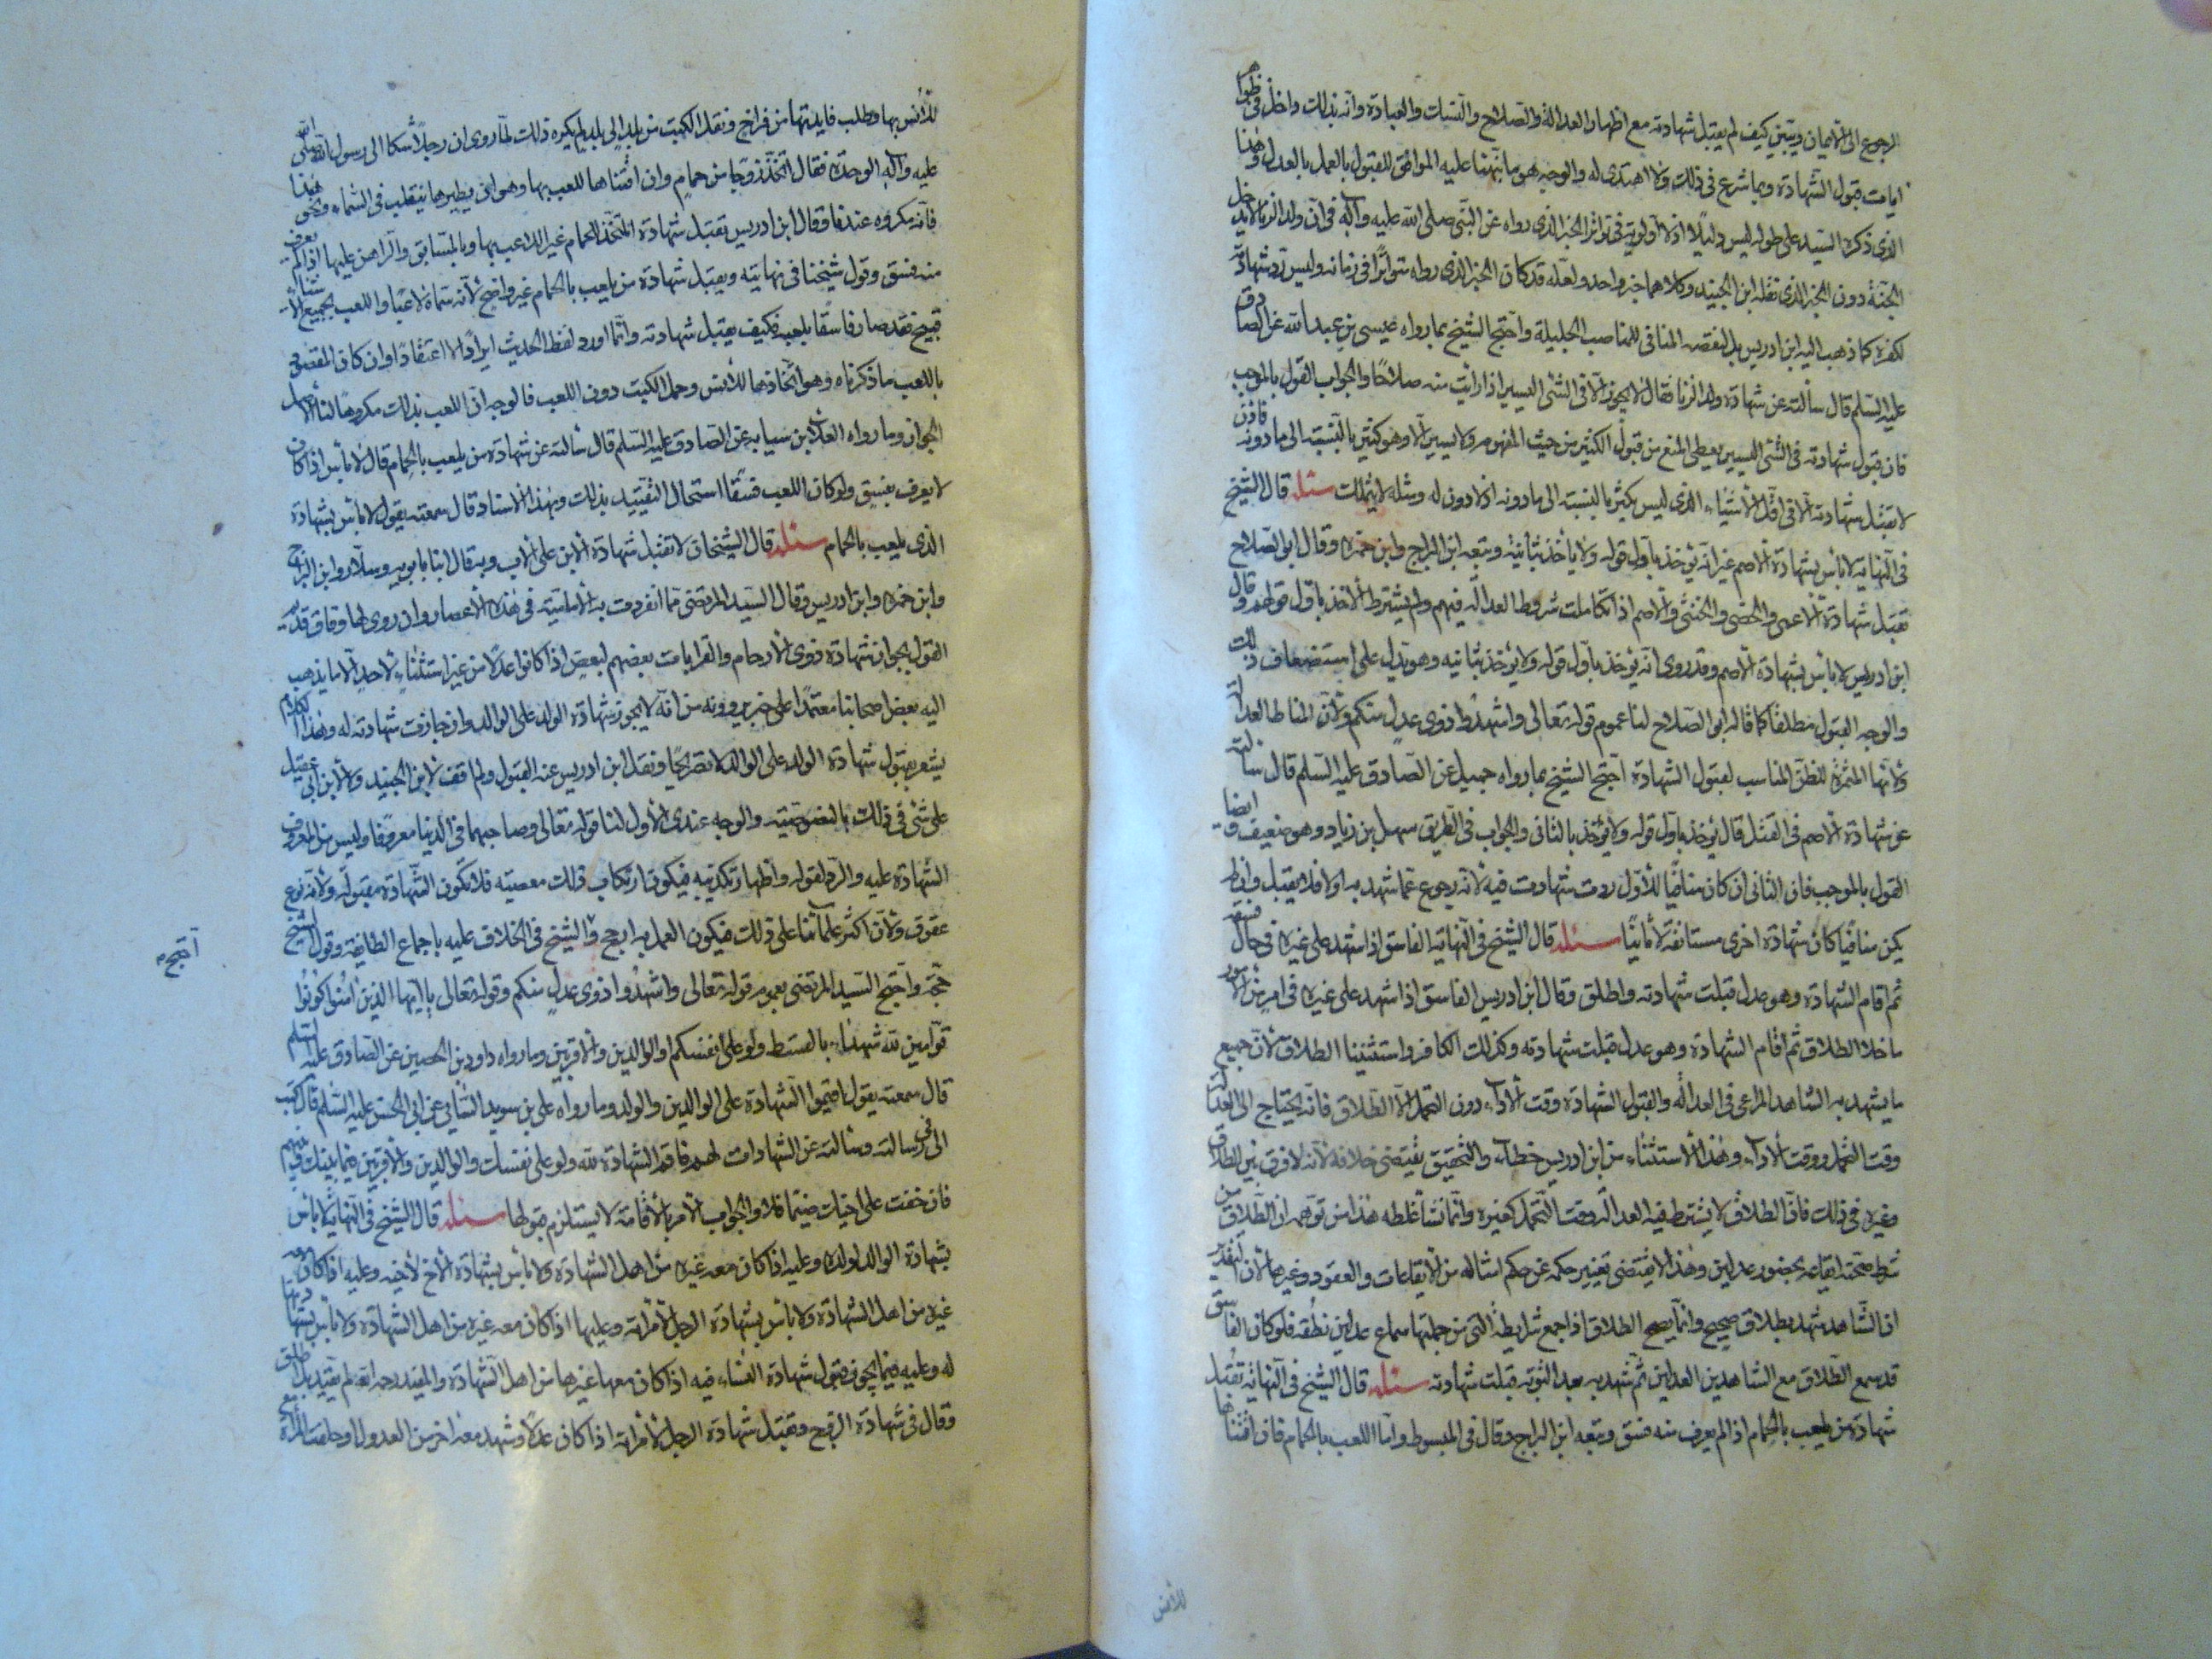 الرجوع الى الايمان ويتبين كيف لم يقبل شهادته مع اظهار العدالة والصلاح والنسك والعبادة وانه بذلك داخل فى ظواهر
ايات قبول الشهادة وبما شرع فى ذلك ولا اهتدى له والوجه هو ما نبهنا عليه الموافق للقبول بالعمل بالعدل وهذا
الذى ذكره السيد على طوله ليس دليلا اذ لا اولوية فى تواتر الخبر الذى رواه عن النبى صلى الله عليه وآله فى ان ولد الزنا لا يدخل
الجنة دون الخبر الذى نقله ابن الجنيد وكلاهما خبر واحد ولعله قد كان الخبر الذى رواه متواترا فى زمانه وليس رد شهادته
لكفره كما ذهب اليه ابن ادريس بل لنقصه المنافى للمناصب الجليلة واحتج الشيخ بما رواه عيسى بن عبد الله عن الصادق
عليه السلم قال سألته عن شهادة ولد الزنا فقال لا يجوز الا فى الشئ اليسير اذا رايت منه صلاحا والجواب القول بالموجب
فان قبول شهادته فى الشئ اليسير يعطى المنع من قبول الكثير من حيث المفهوم ولا يسير الا وهو كثير بالنسبة الى ما دونه فاذن
لا تقبل شهادته الا فى اقل الاشياء الذى ليس بكثير بالنسبة الى ما دونه اذ لا دون له ومثله لا يتملك مسئله قال الشيخ
فى النهاية لا بأس بشهادة الاصم غير انه يؤخذ باول قوله ولا يأخذ بثانيه وتبعه ابن البراج وابن حمزه وقال ابو الصلاح
تقبل شهادة الاعمى والخصى والخنثى والاصم اذا تكاملت شروط العدالة فيهم ولم يشترط الاخذ باول قولهم وقال
ابن ادريس لا بأس بشهادة الاصم وقد روى انه يؤخذ باول قوله ولا يؤخذ بثانيه وهو يدل على استضعاف ذلك
والوجه القبول مطلقا كما قاله ابو الصلاح لنا عموم قوله تعالى واشهدوا ذوى عدل منكم ولان المناط العدالة
لانها المثمرة للظن المناسب لقبول الشهادة احتج الشيخ بما رواه جميل عن الصادق عليه السلم قال سألته
عن شهادة الاصم فى القتل قال يؤخذ باول قوله ولا يؤخذ بالثانى والجواب فى الطريق سهل بن زياد وهو ضعيف وايضا
القول بالموجب فان الثانى ان كان منافيا للاول ردت شهادته فيه لانه رجوع عما شهد به اولا فلا يقبل وان لم
يكن منافيا كان شهادة اخرى مستانفة لا ثانيا مسئله قال الشيخ فى النهاية الفاسق اذا شهد على غيره فى حال فسقه
ثم اقام الشهادة وهو عدل قبلت شهادته واطلق وقال ابن ادريس الفاسق اذا شهد على غيره فى امر من الامور
ما خلا الطلاق ثم اقام الشهادة وهو عدل قبلت شهادته وكذلك الكافر واستثنينا الطلاق لان جميع
ما يشهد به الشاهد المراعى فى العدالة والقبول الشهادة وقت الاداء دون التحمل الا الطلاق فانه يحتاج الى العدالة
وقت التحمل ووقت الاداء وهذا الاستثناء من ابن ادريس خطاء والتحقيق يقتضى خلافه لانه لا فرق بين الطلاق
وغيره فى ذلك فان الطلاق لا يشترط فيه العدالة وقت التحمل كغيره وانما نشأ غلطه هذا من توهمه ان الطلاق من
شرط صحته ايقاعه بحضور عدلين وهذا لا يقتضى تغيير حكمه عن حكم امثاله من الايقاعات والعقود وغيرها لان التقدير
ان الشاهد شهد بطلاق صحيح وانما يصح الطلاق اذا جمع شرايطه التى من جملتها سماع عدلين نطقه فلو كان الفاسق
قد سمع الطلاق مع الشاهدين العدلين ثم شهد به بعد التوبة قبلت شهادته مسئله قال الشيخ فى النهاية تقبل
شهادة من يلعب بالحمام اذا لم يعرف منه فسق وتبعه ابن البراج وقال فى المبسوط واما اللعب بالحمام فان اقتناها
للانس
للانس بها وطلب فايدتها من فراخ ونقل الكتب من بلد الى بلد لم يكره ذلك لما روى ان رجلا شكا الى رسول الله صلى الله
عليه وآله الوحدة فقال اتخذ زوجا من حمام وان اقتناها للعب بها وهو ان يطيرها تتقلب فى السماء ونحو هذا
فانه مكروه عندنا وقال ابن ادريس تقبل شهادة المتخذ للحمام غير اللاعب بها والمسابق والمراهن عليها اذا لم يعرف
منه فسق وقول شيخنا فى نهايته ويقبل شهادة من يلعب بالحمام غير واضح لانه سماه لاعبا واللعب بجميع الاشياء
قبيح فقد صار فاسقا بلعبه فكيف يقبل شهادته وانما اورد لفظ الحديث ايرادا لا اعتقادا وان كان المقصود
باللعب ما ذكرناه وهو اتخاذها للانس وحمل الكتب دون اللعب فالوجه ان اللعب بذلك مكروها لنا الاصل
الجواز وما رواه العلا بن سيابه عن الصادق عليه السلم قال سألته عن شهادة من يلعب بالحمام قال لا بأس اذا كان
لا يعرف بفسق ولو كان اللعب فسقا استحال التقييد بذلك وبهذا الاسناد قال سمعته يقول لا بأس بشهادة
الذى يلعب بالحمام مسئله قال الشيخان لا تقبل شهادة الابن على الاب وبه قال ابنا بابويه وسلار وابن البراج
وابن حمزه وابن ادريس وقال السيد المرتضى مما انفردت به الامامية فى هذه الاعصار وان روى لها وفاق قديم
القول بجواز شهادة ذوى الارحام والقرابات بعضهم لبعض اذا كانوا عدولا من غير استثناء لاحد الا ما يذهب
اليه بعض اصحابنا معتمدا على خبر يروونه من انه لا يجوز شهادة الولد على الوالد وان جازت شهادته له وهذا الكلام
يشعر بقبول شهادة الولد على الوالد لا تصريحا ونقل ابن ادريس عنه القبول ولم اقف لابن الجنيد ولا لابن ابى عقيل
على شئ فى ذلك بالنصوصية والوجه عندى الاول لنا قوله تعالى وصاحبهما فى الدنيا معروفا وليس من المعروف
الشهادة عليه والرد لقوله واظهار تكذيبه فيكون ارتكاب ذلك معصية فلا تكون الشهادة مقبولة ولانه نوع
عقوق ولان اكثر علمائنا على ذلك فيكون العمل به ارجح والشيخ فى الخلاف عليه باجماع الطائفة وقول الشيخ
حجة واحتج السيد المرتضى بعموم قوله تعالى واشهدوا ذوى عدل منكم وقوله تعالى يا ايها الذين امنوا كونوا
قوامين لله شهداء بالقسط ولو على انفسكم او الوالدين والاقربين وما رواه داود بن الحصين عن الصادق عليه السلم
قال سمعته يقول اقيموا الشهادة على الوالدين والولد وما رواه على بن سويد السائى عن ابى الحسن عليه السلم قال كتب
الى فى رسالته وسألته عن الشهادات لهم فاقم الشهادة لله ولو على نفسك والوالدين والاقربين فيما بينك وبينهم
فان خفت على اخيك ضيما فلا والجواب الامر بالاقامة لا يستلزم قبولها مسئله قال الشيخ فى النهاية لا بأس
بشهادة الوالد لولده وعليه اذا كان معه غيره من اهل الشهادة ولا بأس بشهادة الاخ لاخيه وعليه اذا كان معه
غيره من اهل الشهادة ولا بأس بشهادة الرجل لامرأته وعليها اذا كان معه غيره من اهل الشهادة ولا بأس بشهادتها
له وعليه فيما يجوز قبول شهادة النساء فيه اذا كان معها غيرها من اهل الشهادة والمفيد رحمه الله لم يقيد بل اطلق
وقال فى شهادة الزوج وتقبل شهادة الرجل لامرأته اذا كان عدلا وشهد معه اخر من العدول او حلفت المرأة
احتج